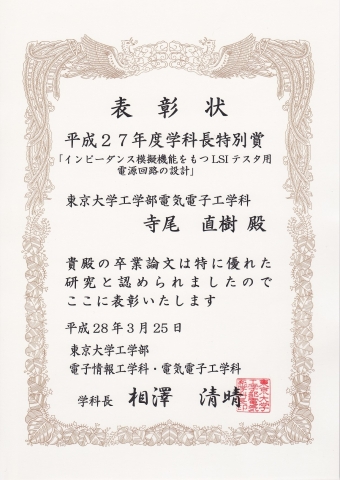 表彰状
平成２７年度学科長特別賞
「インピーダンス模擬機能をもつLSIテスタ用
電源回路の設計」
東京大学工学部電気電子工学科
寺尾 直樹 殿
貴殿の卒業論文は特に優れた
研究と認められましたので
ここに表彰いたします
平成28年3月25日
東京大学工学部
電子情報工学科・電気電子工学科
学科長 相澤 清晴